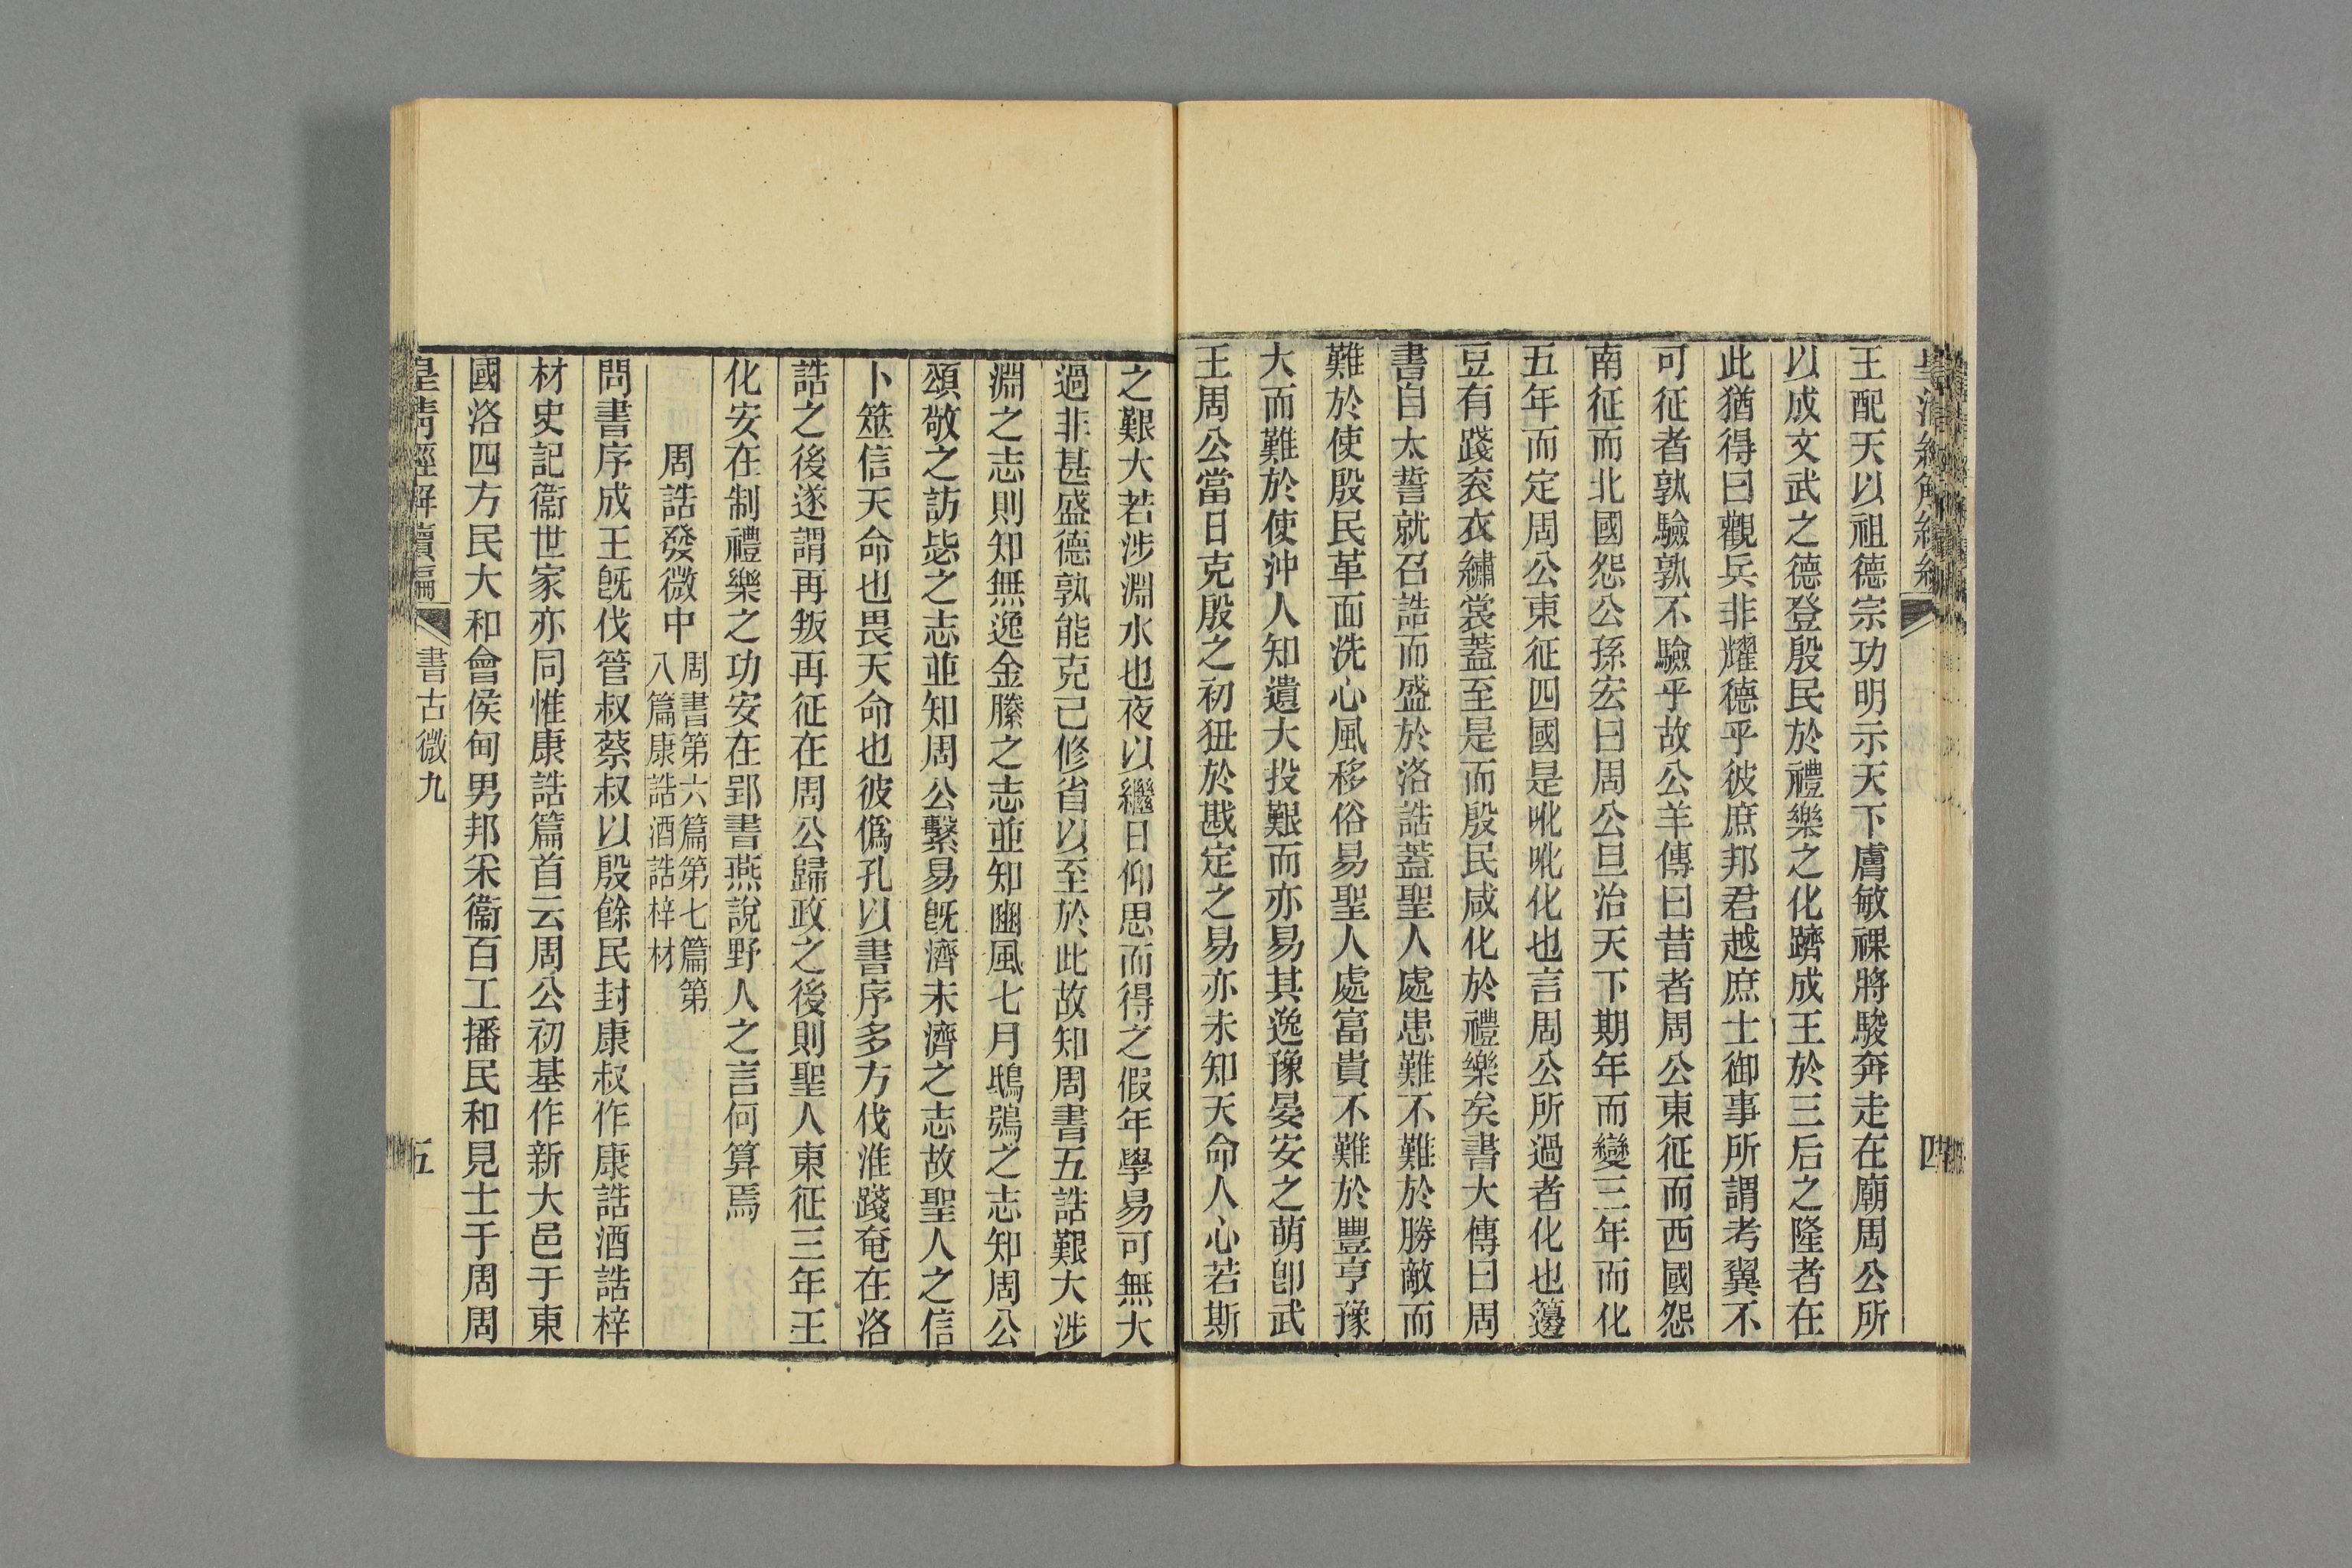 王配天以祖德宗功明示天下膚敏祼將駿奔走在廟周公所
以成文武之德登殷民於禮樂之化躋成王於三后之隆者在
此猶得曰觀兵非耀德乎彼庶邦君越庶士御事所謂考翼不
可征者孰驗孰不驗乎故公羊傳曰昔者周公東征而西國怨
南征而北國怨公孫宏曰周公旦治天下期年而變三年而化
五年而定周公東征四國是吪吪化也言周公所過者化也籩
豆有踐袞衣繡裳蓋至是而殷民咸化於禮樂矣書大傳曰周
書自太誓就召誥而盛於洛誥蓋聖人處患難不難於勝敵而
難於使殷民革面洗心風移俗易聖人處富貴不難於豐亨豫
大而難於使沖人知遺大投艱而亦易其逸豫晏安之萌卽武
王周公當日克殷之初狃於戡定之易亦未知天命人心若斯
四
之艱大若涉淵水也夜以繼日仰思而得之假年學易可無大
過非甚盛德孰能克己修省以至於此故知周書五誥艱大涉
淵之志則知無逸金縢之志並知豳風七月鴟鴞之志知周公
頌敬之訪毖之志並知周公繫易旣濟未濟之志故聖人之信
卜筮信天命也畏天命也彼僞孔以書序多方伐淮踐奄在洛
誥之後遂謂再叛再征在周公歸政之後則聖人東征三年王
化安在制禮樂之功安在郢書燕說野人之言何算焉
周誥發微中
周書第六篇第七篇第
八篇康誥酒誥梓材
問書序成王旣伐管叔蔡叔以殷餘民封康叔作康誥酒誥梓
材史記衞世家亦同惟康誥篇首云周公初基作新大邑于東
國洛四方民大和會侯甸男邦采衞百工播民和見士于周周
皇淸經解續編
書古微九
五